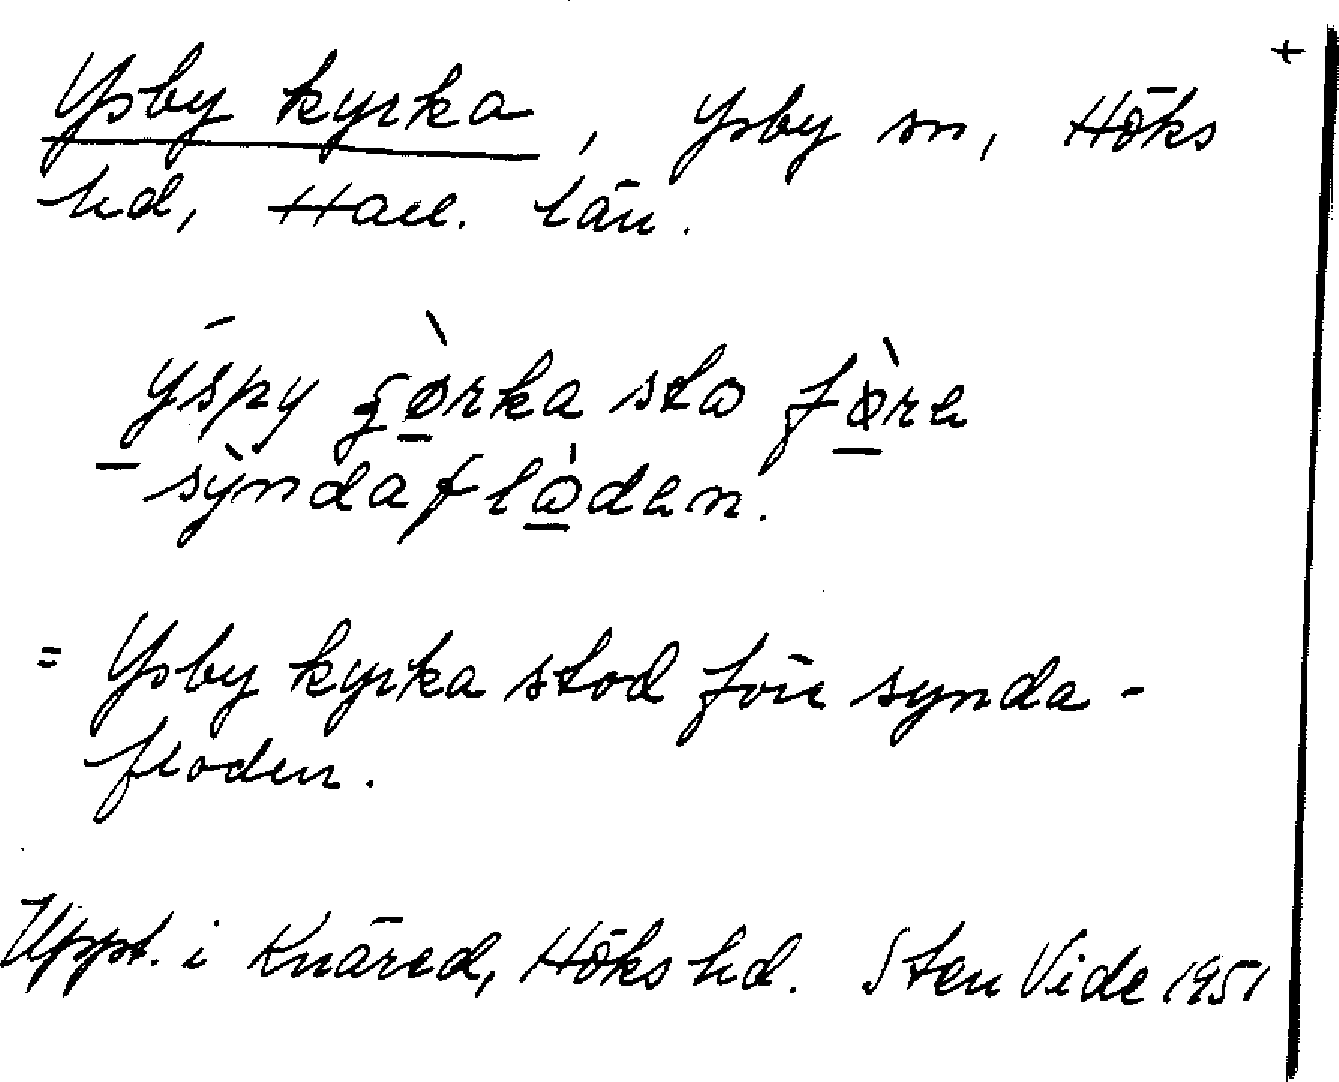 +
Ysby kyrka, Ysby sn, Höks
hd, Hall. län.
ýspy ʒø̀rka sta fø̀re
sỳndaflo̍den.
= Ysby kyrka stod före synda-
floden.
Uppt. i Knäred, Höks hd. Sten Vide 1951